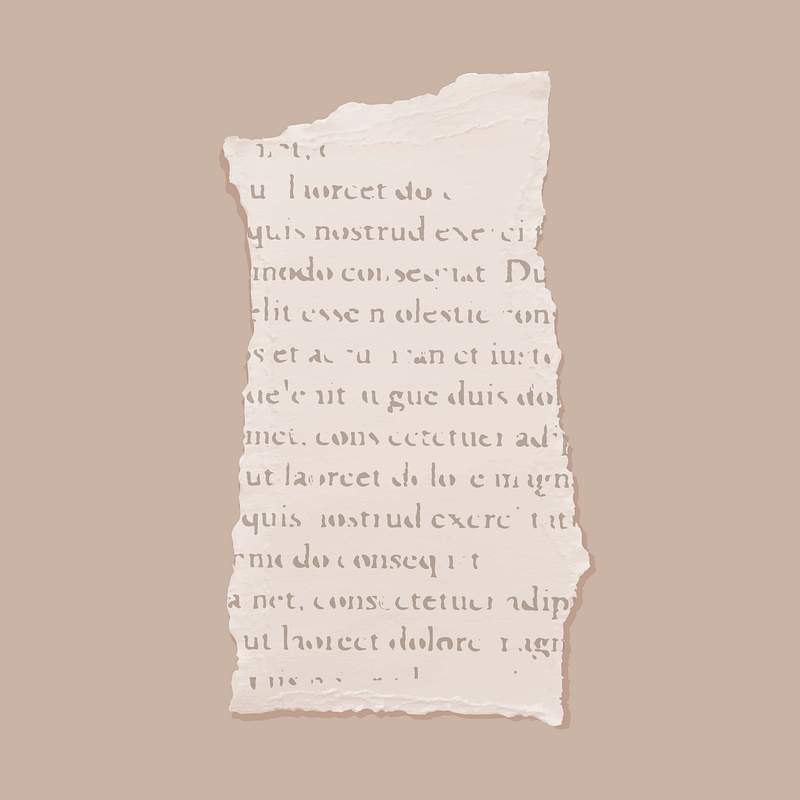 laoreet do
quis nostrud exerci
modo consequat Du
elit esse molestie cons
et accumsan et iusto
delenit augue duis dol
met, consectetuer adip
ut laoreet dolore magn
quis nostrud exerci tati
mmodo consequat
amet, consectetuer adipi
ut laoreet dolore magn